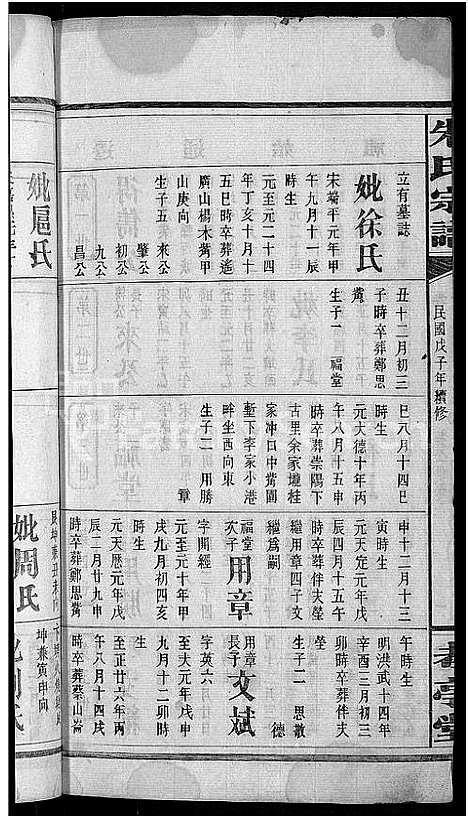 朱氏宗譜
民國戊子年續修
立有墓誌
妣徐氏
宋端平元年甲
午九月十一辰
時生
元至元二十四
年丁亥十月十
五巳時卒葬遙
廣山楊木嘴甲
山庚向
生子五 來公
肇公
初公
九公
昌公
丑十二月初三
子時卒葬鄭思
嘴
生子一 福堂
巳八月十四巳
時生
元大德十年丙
午八月十五申
時卒葬崇陽下
古里余家壠桂
家冲口中嘴園
塹下李家小港
畔坐西向東
生子二 用勝
章
申十二月十三
寅時生
元天定元年戊
辰四月十五午
時卒葬伴夫塋
繼用章四子文
繼為嗣
福堂次子 用章
字開經
元至元十年甲
戌九月初四亥
時生
元天曆元年戊
辰二月廿九申
時卒葬鄭思嘴
午時生
明洪武十四年
辛酉三月初三
卯時卒葬伴夫
塋
生子二 思敬
德
用章長子 文斌
字英六
元至大元年戊申
九月十二卯時
生
至正廿六丙
午八月十四戌
時卒葬蔡山崙
妣扈氏
妣周氏
坤兼寅申向